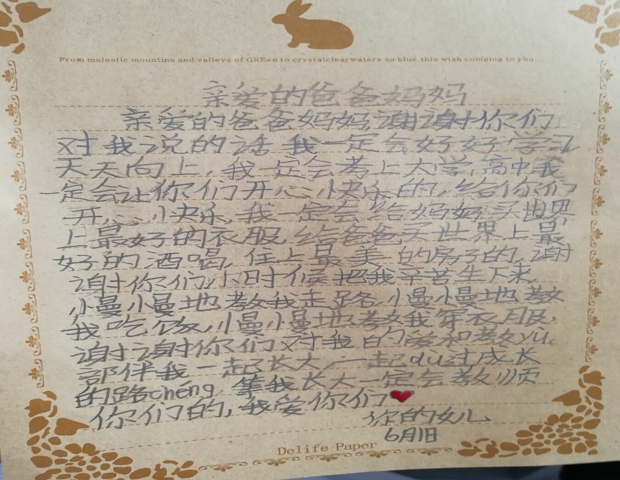 From majestic mountins and valleys of GREen to crystalclear waters so blue,this wish comging to you.
亲爱的爸爸妈妈
亲爱的爸爸妈妈,谢谢你们
对我说的话,我一定会好好学习
天天向上,我一定会考上大学,高中我
一定会让你们开心快乐的,给你们
开心快乐,我一定会给妈妈买世界
上最好的衣服,给爸爸买世界上最
好的酒喝,住上最美的房子的,谢
谢你们小时候把我辛苦生下来,
慢慢地教我走路,慢慢地教
我吃饭,慢慢地教我穿衣服,
谢谢你们对我的爱和教yu,
部伴我一起长大,一起du过成长
的路chéng,等我长大一定会孝顺
你们的,我爱你们
你的女儿
6月1日
Delife Paper